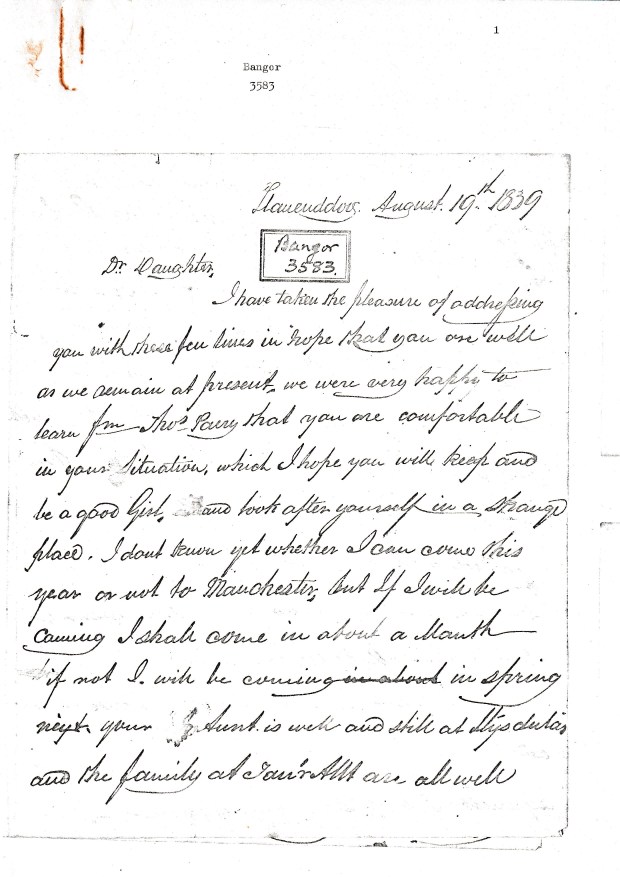 1
Bangor
3583
August. 19.th 1839
Bangor
3583.
Dr. Daughter,
I have taken the pleasure of addressing
you with these few lines in hope that you are well
as we remain at present, we were very happy to
learn fm Thos Parry that you are comfortable
in your Situation, which I hope you will keep and
be a good Girl, and look after yourself in a strange
place. I dont know yet whether I can come this
year or not to Manchester, but If I will be
Coming I shall come in about a Month
if not I. will be coming in about in spring
next your Aunt is well and still at
and the family at Tan'r Allt are all well